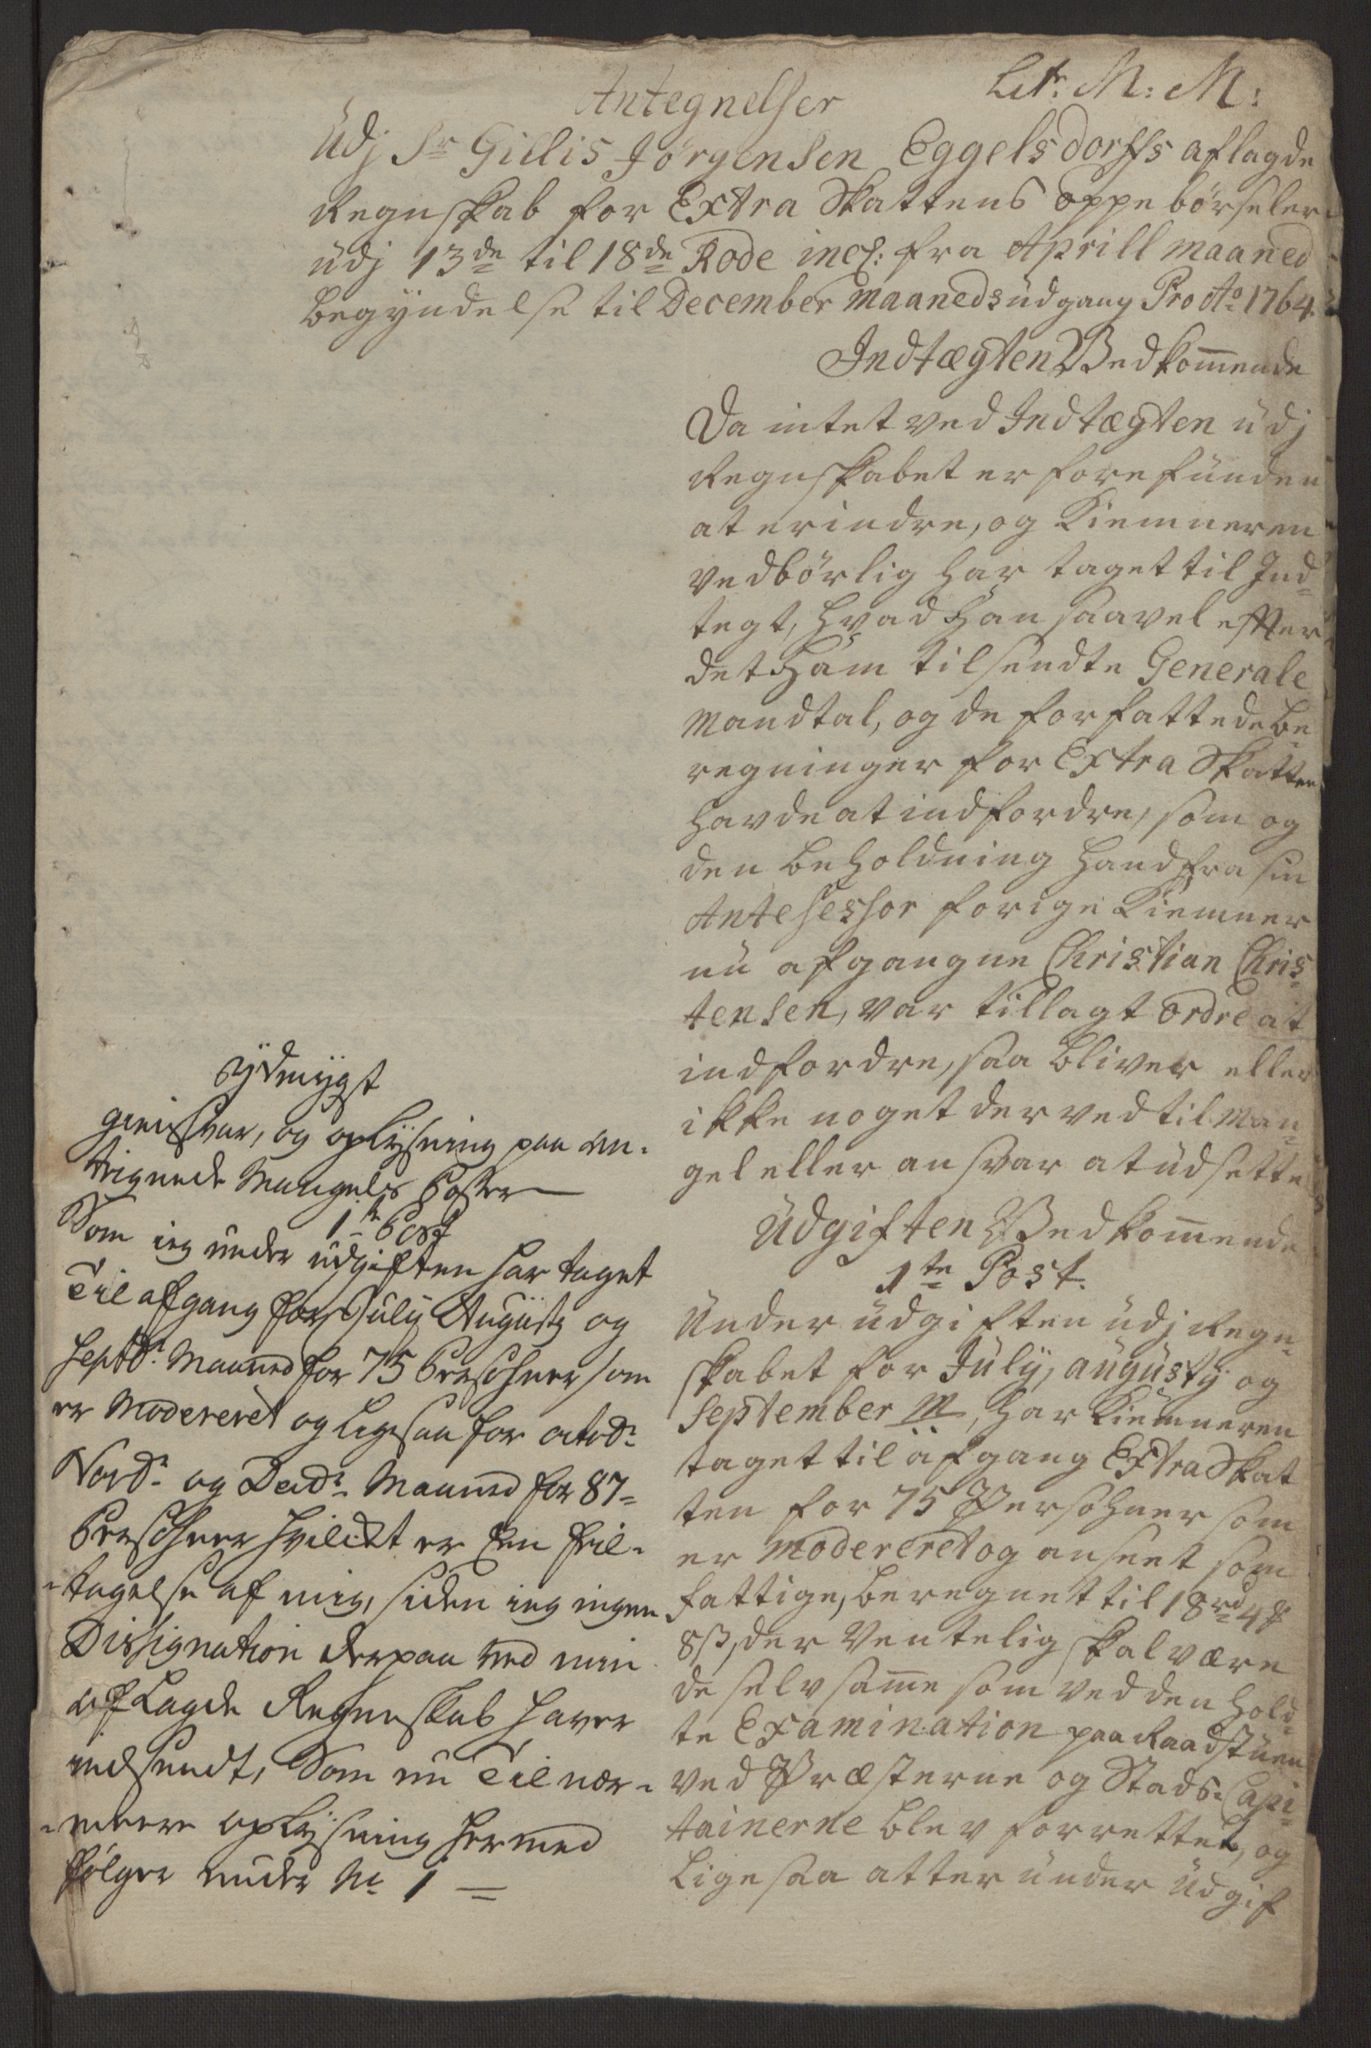 Litr: M: M:
Antegnelser
Udj Sr Gillis Jørgensen Eggelsdorffs aflagde
Regnskab for Extra Skattens oppebørseler
udj 13de til 18de Rode incl: fra Aprill maaned
begyndelse til December maaneds udgang Pro Ao 1764
Indtægten Vedkom̅ende
Da intet ved Indtægten udj
Regnskabet er forefunden
at erindre, og Kiemneren
vedbørlig har taget til Ind-
tegt, hvad han saavel efter
det ham tilsendte Generale
Mandtal, og de forfattede be-
regninger for Extra Skatten
havde at indfordre, som og
den beholdning hand fra sin
Antesessor forige Kiemner
nu afgangne Christian Chris-
tensen, var tillagt ordre at
indfordre, saa bliver eller
ikke noget derved til Man-
gel eller ansvar at udsette
Udgiften Vedkom̅ende
1te Post.
Under udgiften udj Regn-
skabet for July, augusty og
September M, har Kiemneren
taget til afgang Extra Skat
ten for 75 Persohner som
er Modereret og anseet som
fattige, beregnet til 18rd 4 ß
8 ß, der Ventelig skal være
de selv sam̅e som ved den hold-
te Examination paa Raadstuen
ved Præsterne og Stads-Capi-
tainerne blev forrettet, og
ligesaa atter under Udgif
Ydmygst
gienSvar, og oplysning paa an-
tegnede Mangels Poster
1te Post
Som ieg under udgiften har taget
Til afgang for July Augusty og
Septbr. Maaned for 75 Persohner som
er Modereret og ligesaa for octobr.
Novbr. og Decbr. Maaned for 87-
Persohner hvilcket er En feil-
tagelse af mig, siden ieg ingen
Dissignation derpaa ved min
aflagde Regneskab haver
indsendt, Som nu Til nær-
meere oplysning hermed
følger under No 1